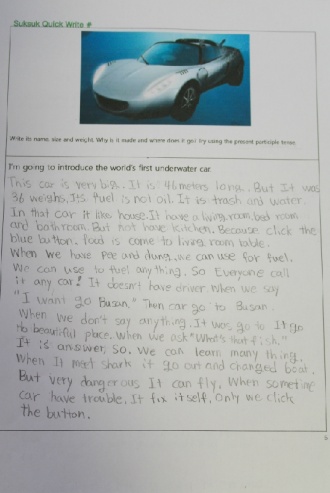 Suksuk Quick Write #
Write its name, size and weight. Why is it made and where does it go? Try using the present participle tense.
I'm going to introduce the world's first underwater car.
This car is very big. It is 46 meters long. But It was
36 weighs. It's fuel is not oil. It is trash and water.
In that car it like house. It have a living room, bed room
and bathroom. But not have kitchen. Because click the
blue button, food is come to living room table.
When we have pee and dung, we can use for fuel.
We can use to fuel anything. So Everyone call
it any car! It doesn't have driver. When we say
"I want go Busan." Then car go to Busan.
When we don't say anything. It was go to It go
to beautiful place. When we ask "What's that fish."
It is answer. So, we can learn many thing.
When It meet shark it go out and changed boat.
But very dangerous It can fly. When sometime
car have trouble, It fix itself. Only we click
the button.